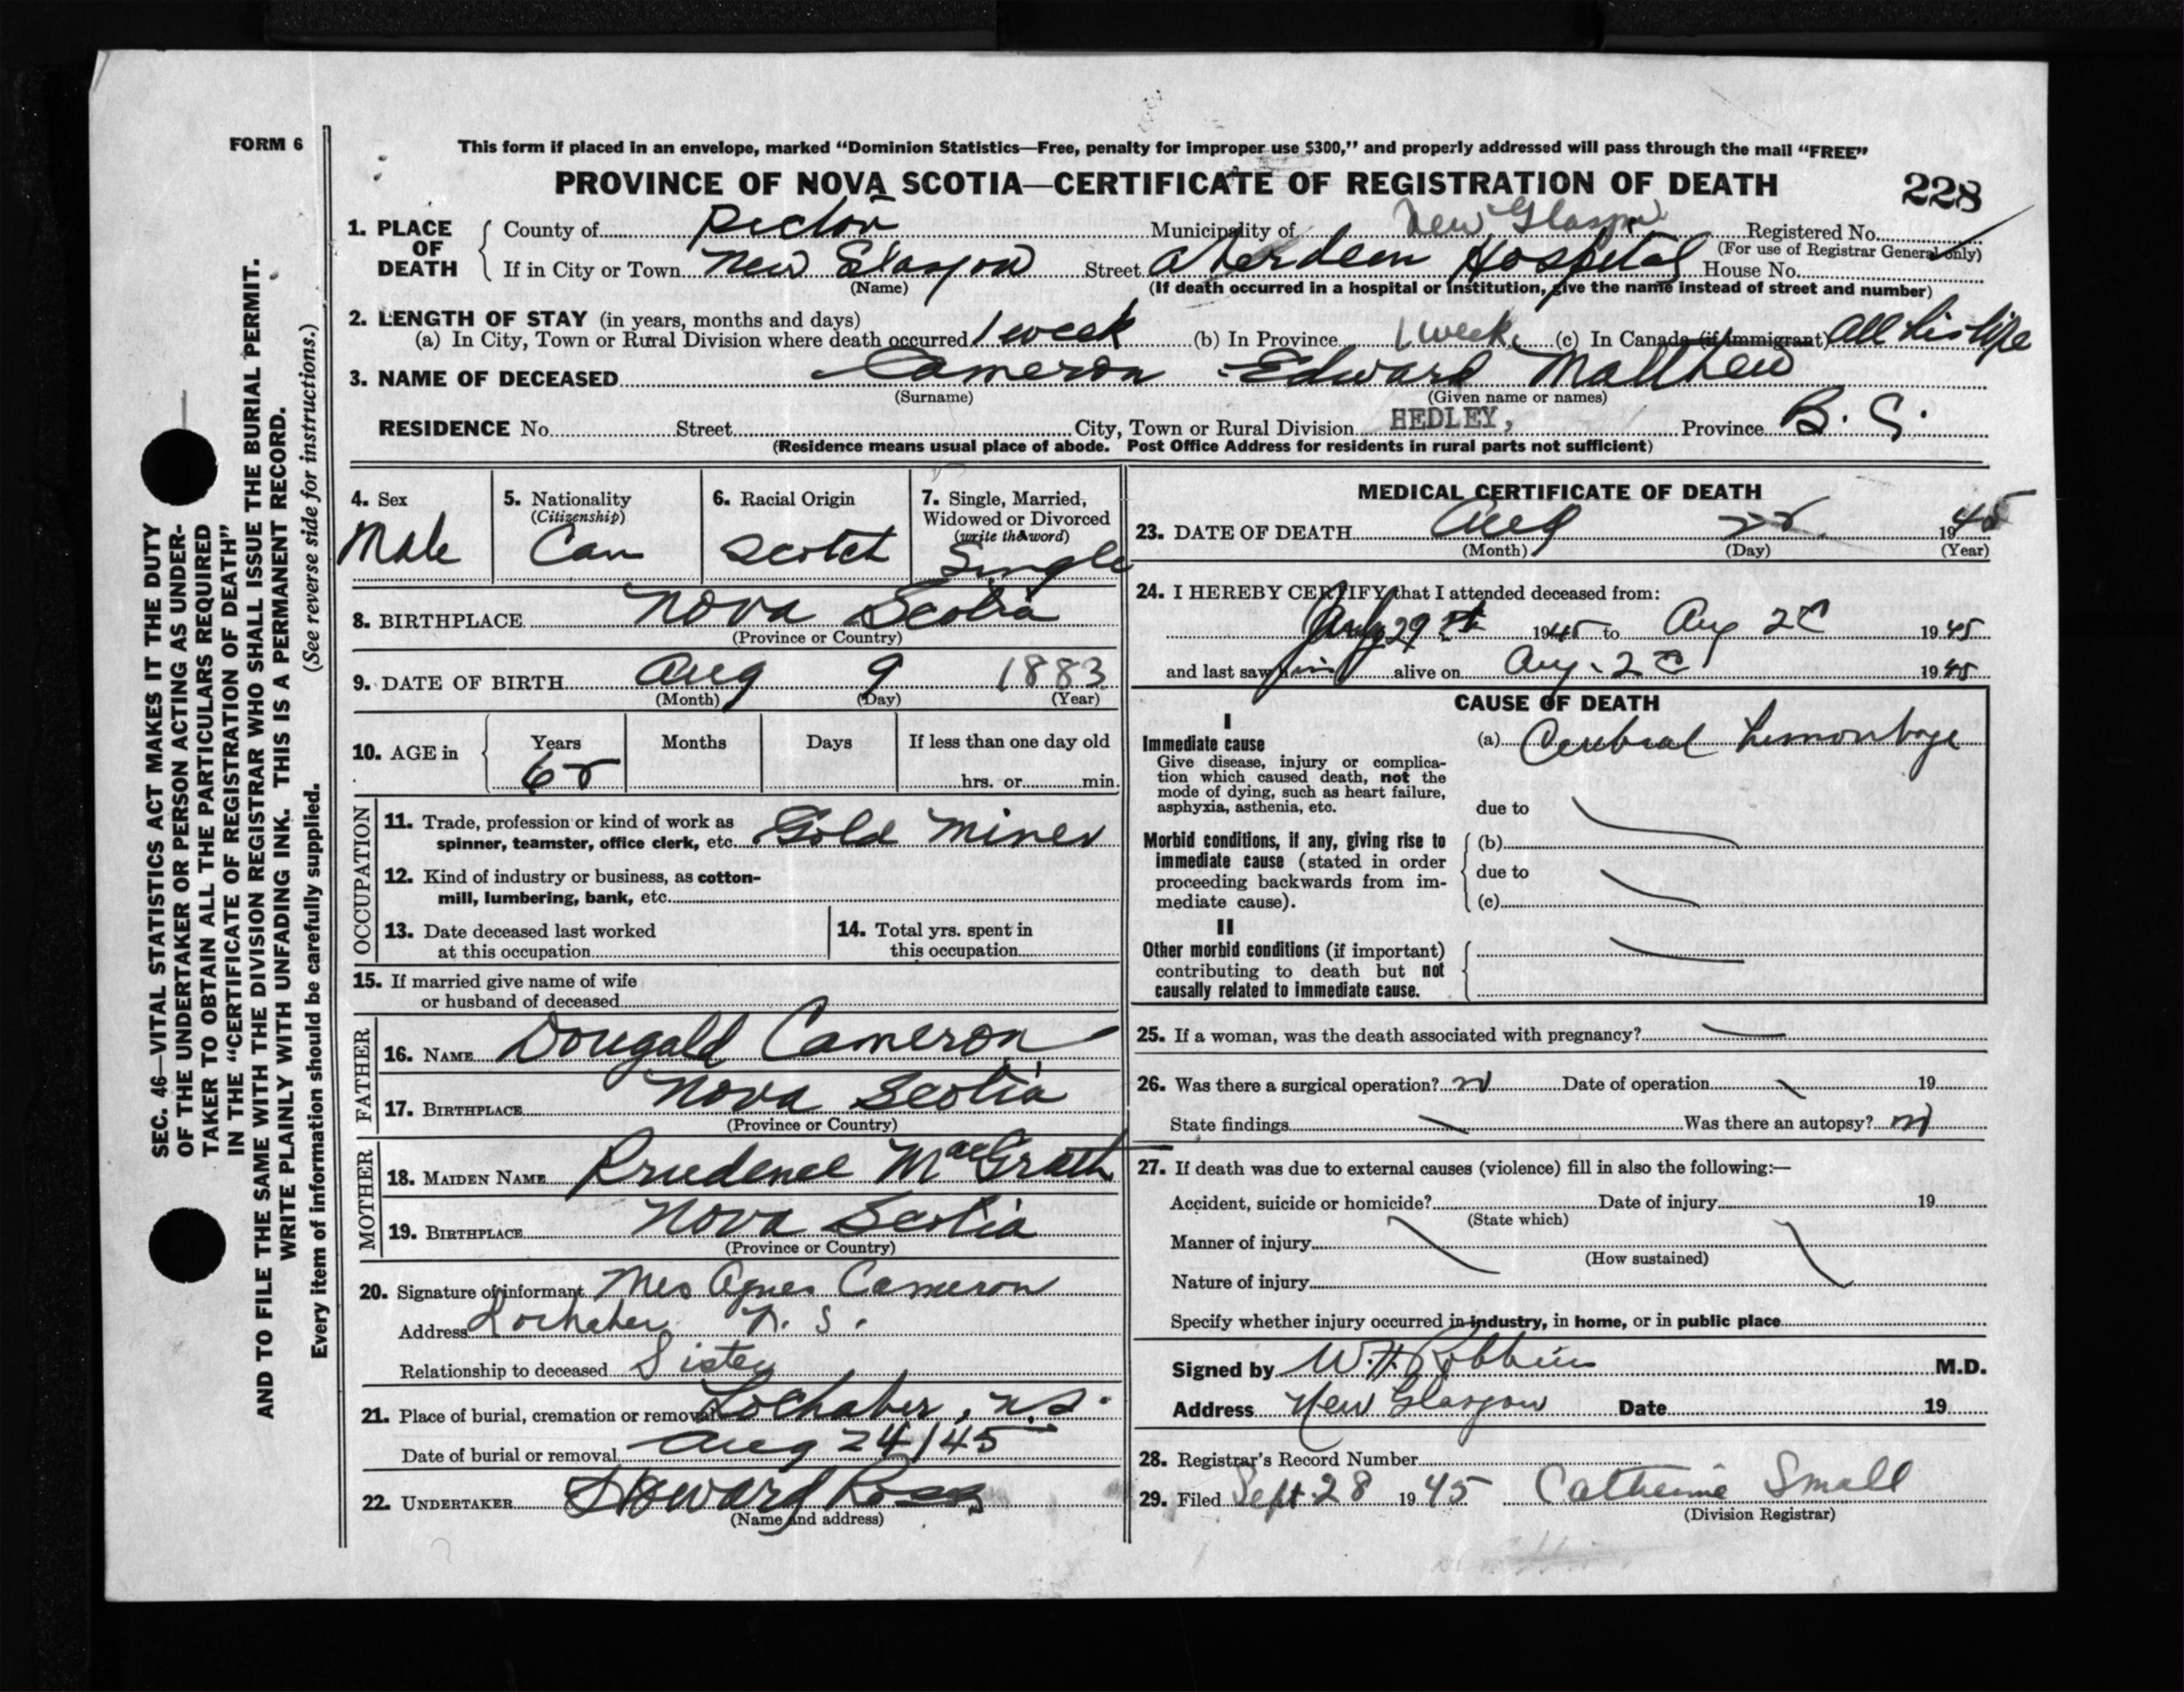 FORM 6
SEC. 46—VITAL STATISTICS ACT MAKES IT THE DUTY
OF THE UNDERTAKER OR PERSON ACTING AS UNDER-
TAKER TO OBTAIN ALL THE PARTICULARS REQUIRED
IN THE "CERTIFICATE OF REGISTRATION OF DEATH"
AND TO FILE THE SAME WITH THE DIVISION REGISTRAR WHO SHALL ISSUE THE BURIAL PERMIT.
WRITE PLAINLY WITH UNFADING INK. THIS IS A PERMANENT RECORD.
Every item of information should be carefully supplied. (See reverse side for instructions.)
This form if placed in an envelope, marked "Dominion Statistics—Free, penalty for improper use $300," and properly addressed will pass through the mail "FREE"
PROVINCE OF NOVA SCOTIA—CERTIFICATE OF REGISTRATION OF DEATH
228
1. PLACE OF DEATH
County of Pictou Municipality of New Glasgow Registered No.
(For use of Registrar General only)
If in City or Town New Glasgow Street Aberdeen Hospital House No.
(Name) (If death occurred in a hospital or institution, give the name instead of street and number)
2. LENGTH OF STAY (in years, months and days)
(a) In City, Town or Rural Division where death occurred 1 week (b) In Province 1 week (c) In Canada (if immigrant) All his life
3. NAME OF DECEASED Cameron Edward Matthew
(Surname) (Given name or names)
RESIDENCE No. Street City, Town or Rural Division HEDLEY, Province B. C.
(Residence means usual place of abode. Post Office Address for residents in rural parts not sufficient)
4. Sex
Male
5. Nationality
(Citizenship)
Can
6. Racial Origin
Scotch
7. Single, Married,
Widowed or Divorced
(write the word)
Single
8. BIRTHPLACE Nova Scotia
(Province or Country)
9. DATE OF BIRTH Aug 9 1883
(Month) (Day) (Year)
10. AGE in Years Months Days If less than one day old
62 hrs. or min.
OCCUPATION
11. Trade, profession or kind of work as
spinner, teamster, office clerk, etc. Gold Miner
12. Kind of industry or business, as cotton-
mill, lumbering, bank, etc.
13. Date deceased last worked
at this occupation
14. Total yrs. spent in
this occupation
15. If married give name of wife
or husband of deceased
FATHER
16. NAME Dougald Cameron
17. BIRTHPLACE Nova Scotia
(Province or Country)
MOTHER
18. MAIDEN NAME Prudence MacGrath
19. BIRTHPLACE Nova Scotia
(Province or Country)
20. Signature of informant Mrs Agnes Cameron
Address Lochaber N. S.
Relationship to deceased Sister
21. Place of burial, cremation or removal Lochaber, N.S.
Date of burial or removal Aug 24/45
22. UNDERTAKER Howard Ross
(Name and address)
MEDICAL CERTIFICATE OF DEATH
23. DATE OF DEATH Aug 22 1945
(Month) (Day) (Year)
24. I HEREBY CERTIFY that I attended deceased from:
July 29 1945 to Aug 22 1945
and last saw him alive on Aug. 22 1945
CAUSE OF DEATH
I
Immediate cause
Give disease, injury or complica-
tion which caused death, not the
mode of dying, such as heart failure,
asphyxia, asthenia, etc.
(a) Cerebral hemorrhage
due to
Morbid conditions, if any, giving rise to
immediate cause (stated in order
proceeding backwards from im-
mediate cause).
(b)
due to
(c)
II
Other morbid conditions (if important)
contributing to death but not
causally related to immediate cause.
25. If a woman, was the death associated with pregnancy? —
26. Was there a surgical operation? no Date of operation 19
State findings Was there an autopsy? no
27. If death was due to external causes (violence) fill in also the following:—
Accident, suicide or homicide? Date of injury 19
(State which)
Manner of injury
(How sustained)
Nature of injury
Specify whether injury occurred in industry, in home, or in public place
Signed by W. H. Robbins M.D.
Address New Glasgow Date 19
28. Registrar's Record Number
29. Filed Sept. 28 1945 Catherine Small
(Division Registrar)